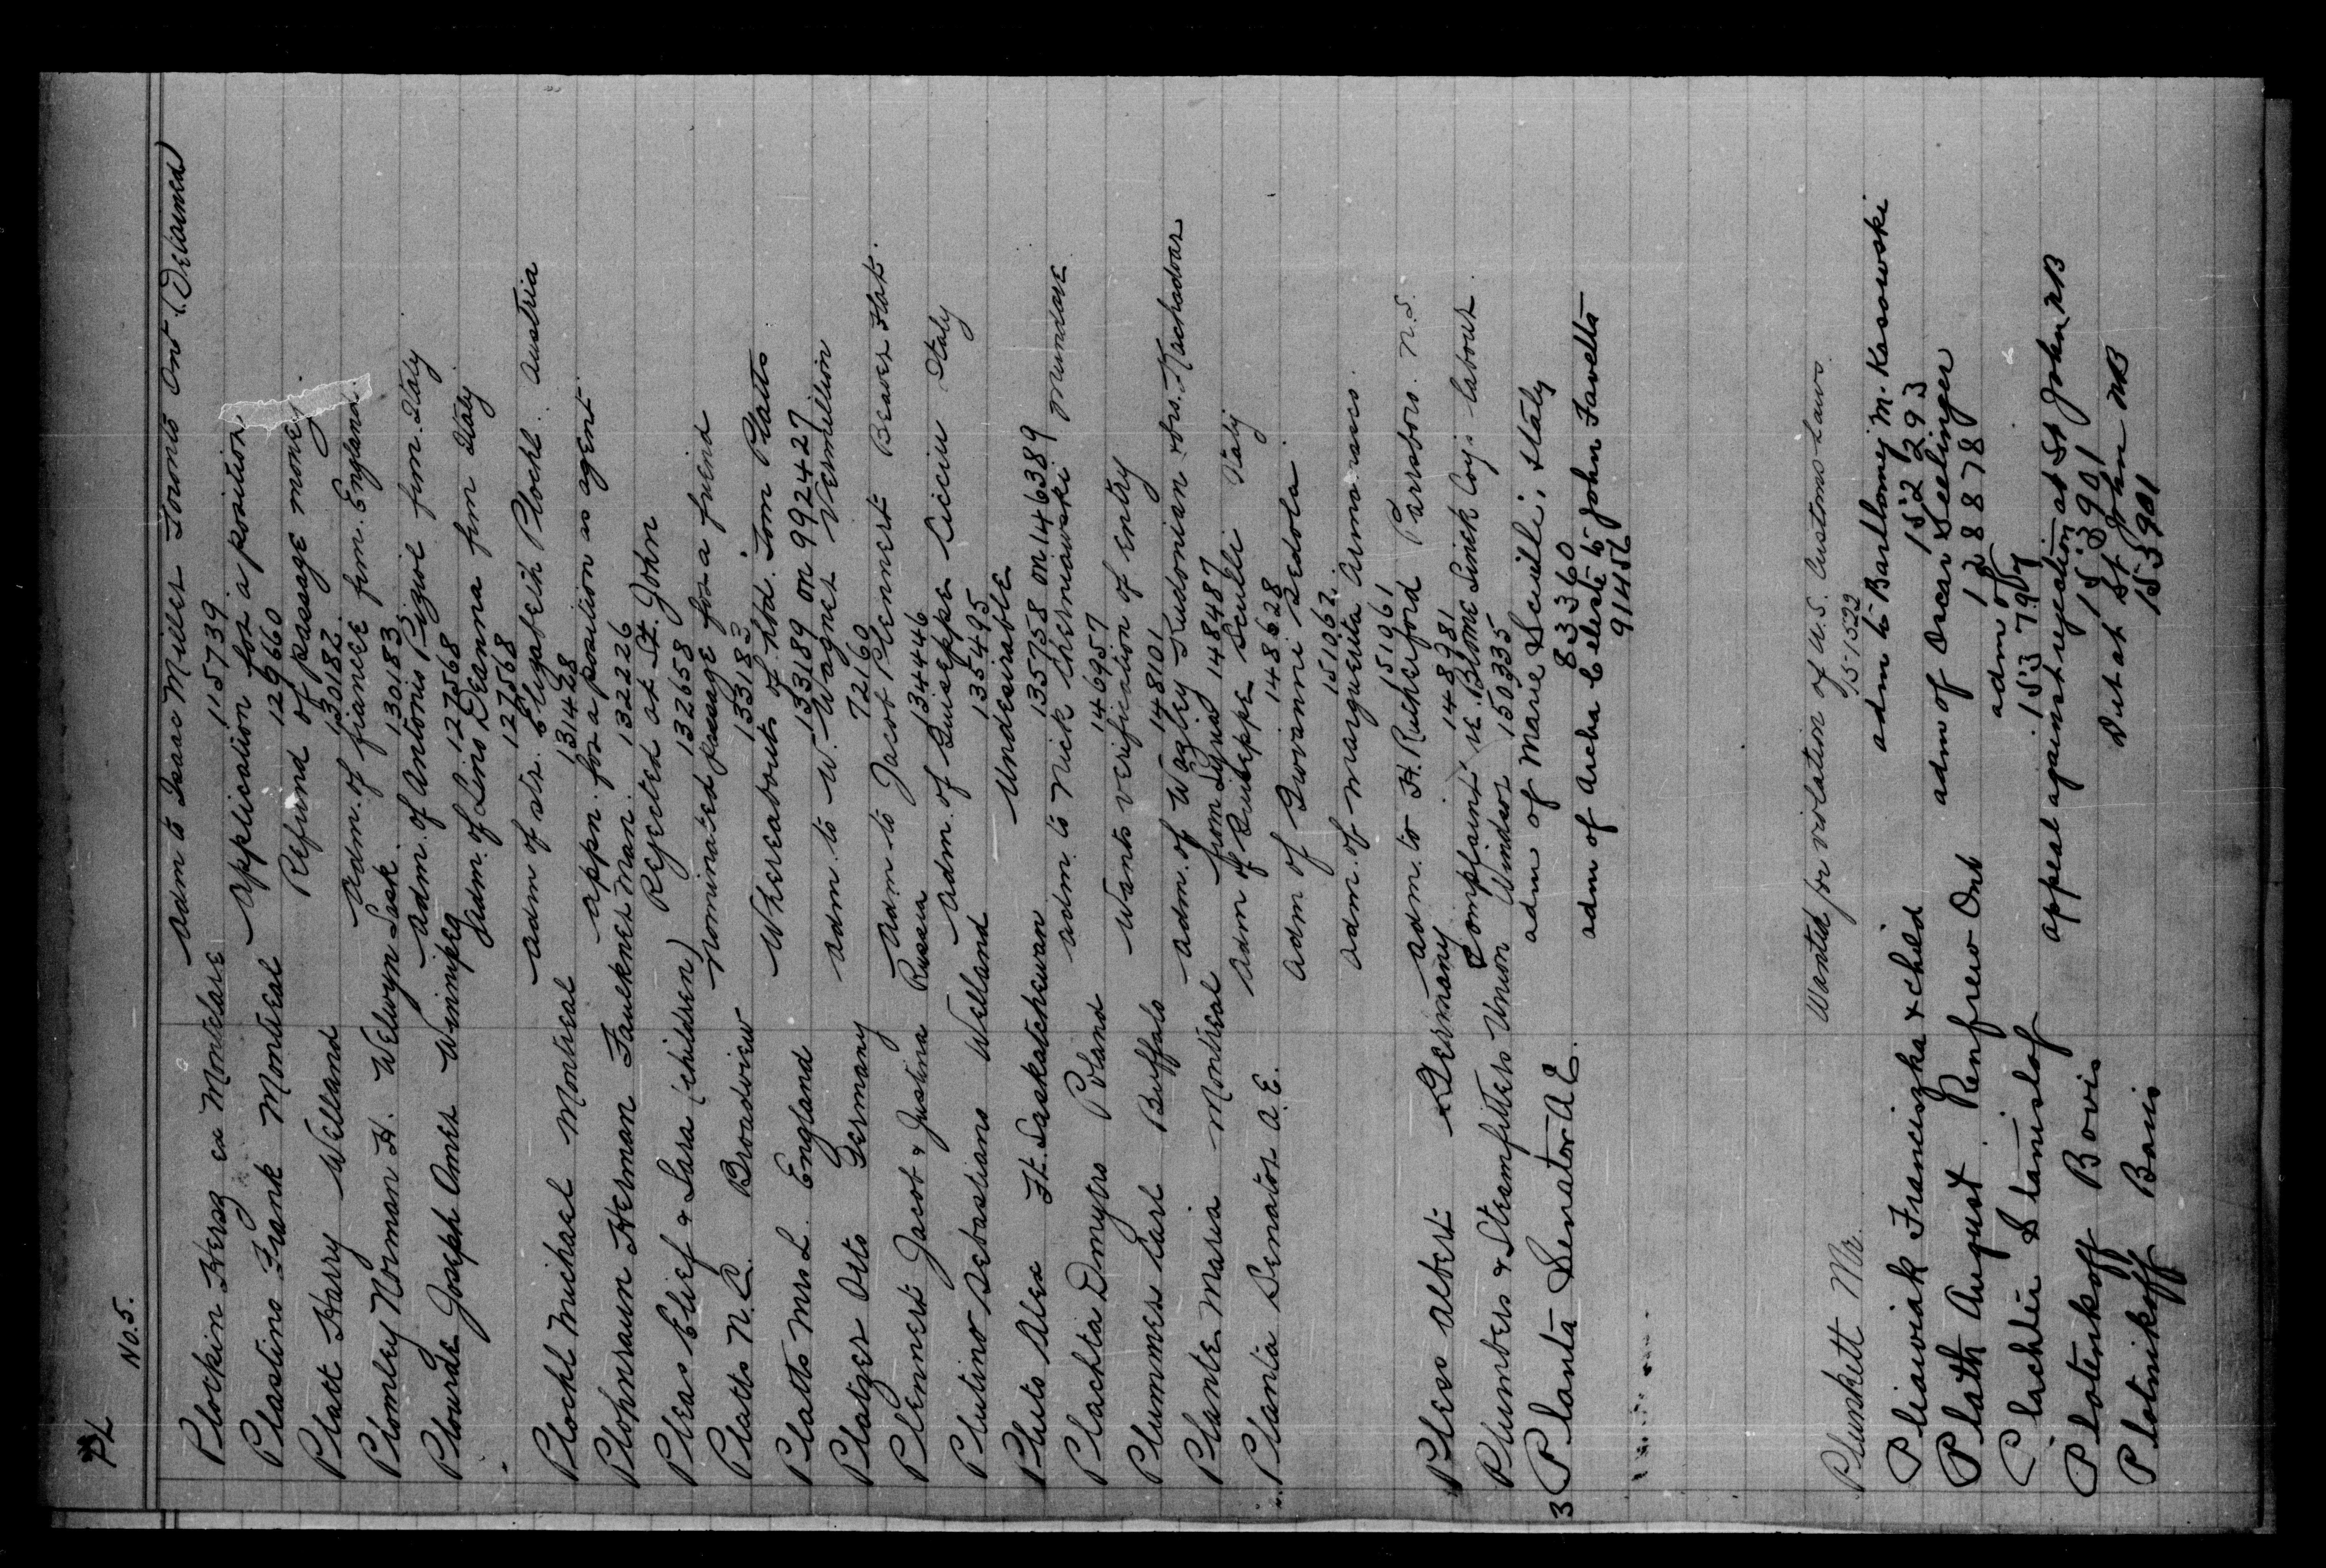 PL
No. 5.
Plockin Hersz ex Montclare adm to Isaac Miller Toronto Ont (Detained)
115739
Plastino Frank Montreal application for a position
129660
Platt Harry Welland Refund of passage money.
130182
Plomley Norman H. Welwyn Sask. adm. of fiancee from England
130183
Plourde Joseph Amer Winnipeg adm. of Antonio from Italy
127568
adm. of Lino Deanna from Italy
127568
Plochl Michael Montreal adm of str. Elizabeth Plochl Austria
131428
Plohnraun Herman Faulkner Man. appn. for a position as agent
132226
Pleas Elief & Sara (children) Rejected at St. John
132658
Platts N.C. Broadview nominated passage for a friend
133183
Platts Mrs L. England Whereabouts of hbd. Tom Platts
133189 on 992427
Platzer Otto Germany adm. to W. Wagner Vermillion
72160
Plennert Jacob & Justina Russia adm to Jacob Plennert Beaver Flat.
134446
Plutino Sebastiano Welland adm. of Guiseppe Cicciu Italy
135495
Pluto Alex Ft. Saskatchewan Undesirable
135758 on 146389
Plachta Dmytro Poland adm. to Nick Cherniawski Mundare
146957
Plummer Carl Buffalo Wants verification of entry
148101
Plante Maria Montreal adm. of Wazley Kudonian & Mrs. Kachadoar
from Syria 148487
Planta Senator A.E. adm of Guiseppe Sculli Italy
148628
adm of Giovanni Gedola
151062
adm. of Marguerita Armanasco
151061
Pless Albert Germany adm. to H. Rutherford Parrsboro. N.S.
148981
Plumbers & Steamfitters Union Windsor Complaint re. Blome Sinek Coy. labour
150335
3 Planta Senator A E. adm of Marie Scuilli; Italy
833360
adm of Archa Celeste to John Favetto
91456
Plunkett Mr. Wanted for violation of U.S. Customs Laws
151522
Pliawiak Franciszka & child adm to Barthomej M. Kasowski
152293
Plath August Renfrew Ont adm of Oscar Seelinger
128878
Plachtie Stanislof adm of
Plotenkoff Boris appeal against rejection at St John NB
153901
Plotnikoff Boris Det at St John NB
153901